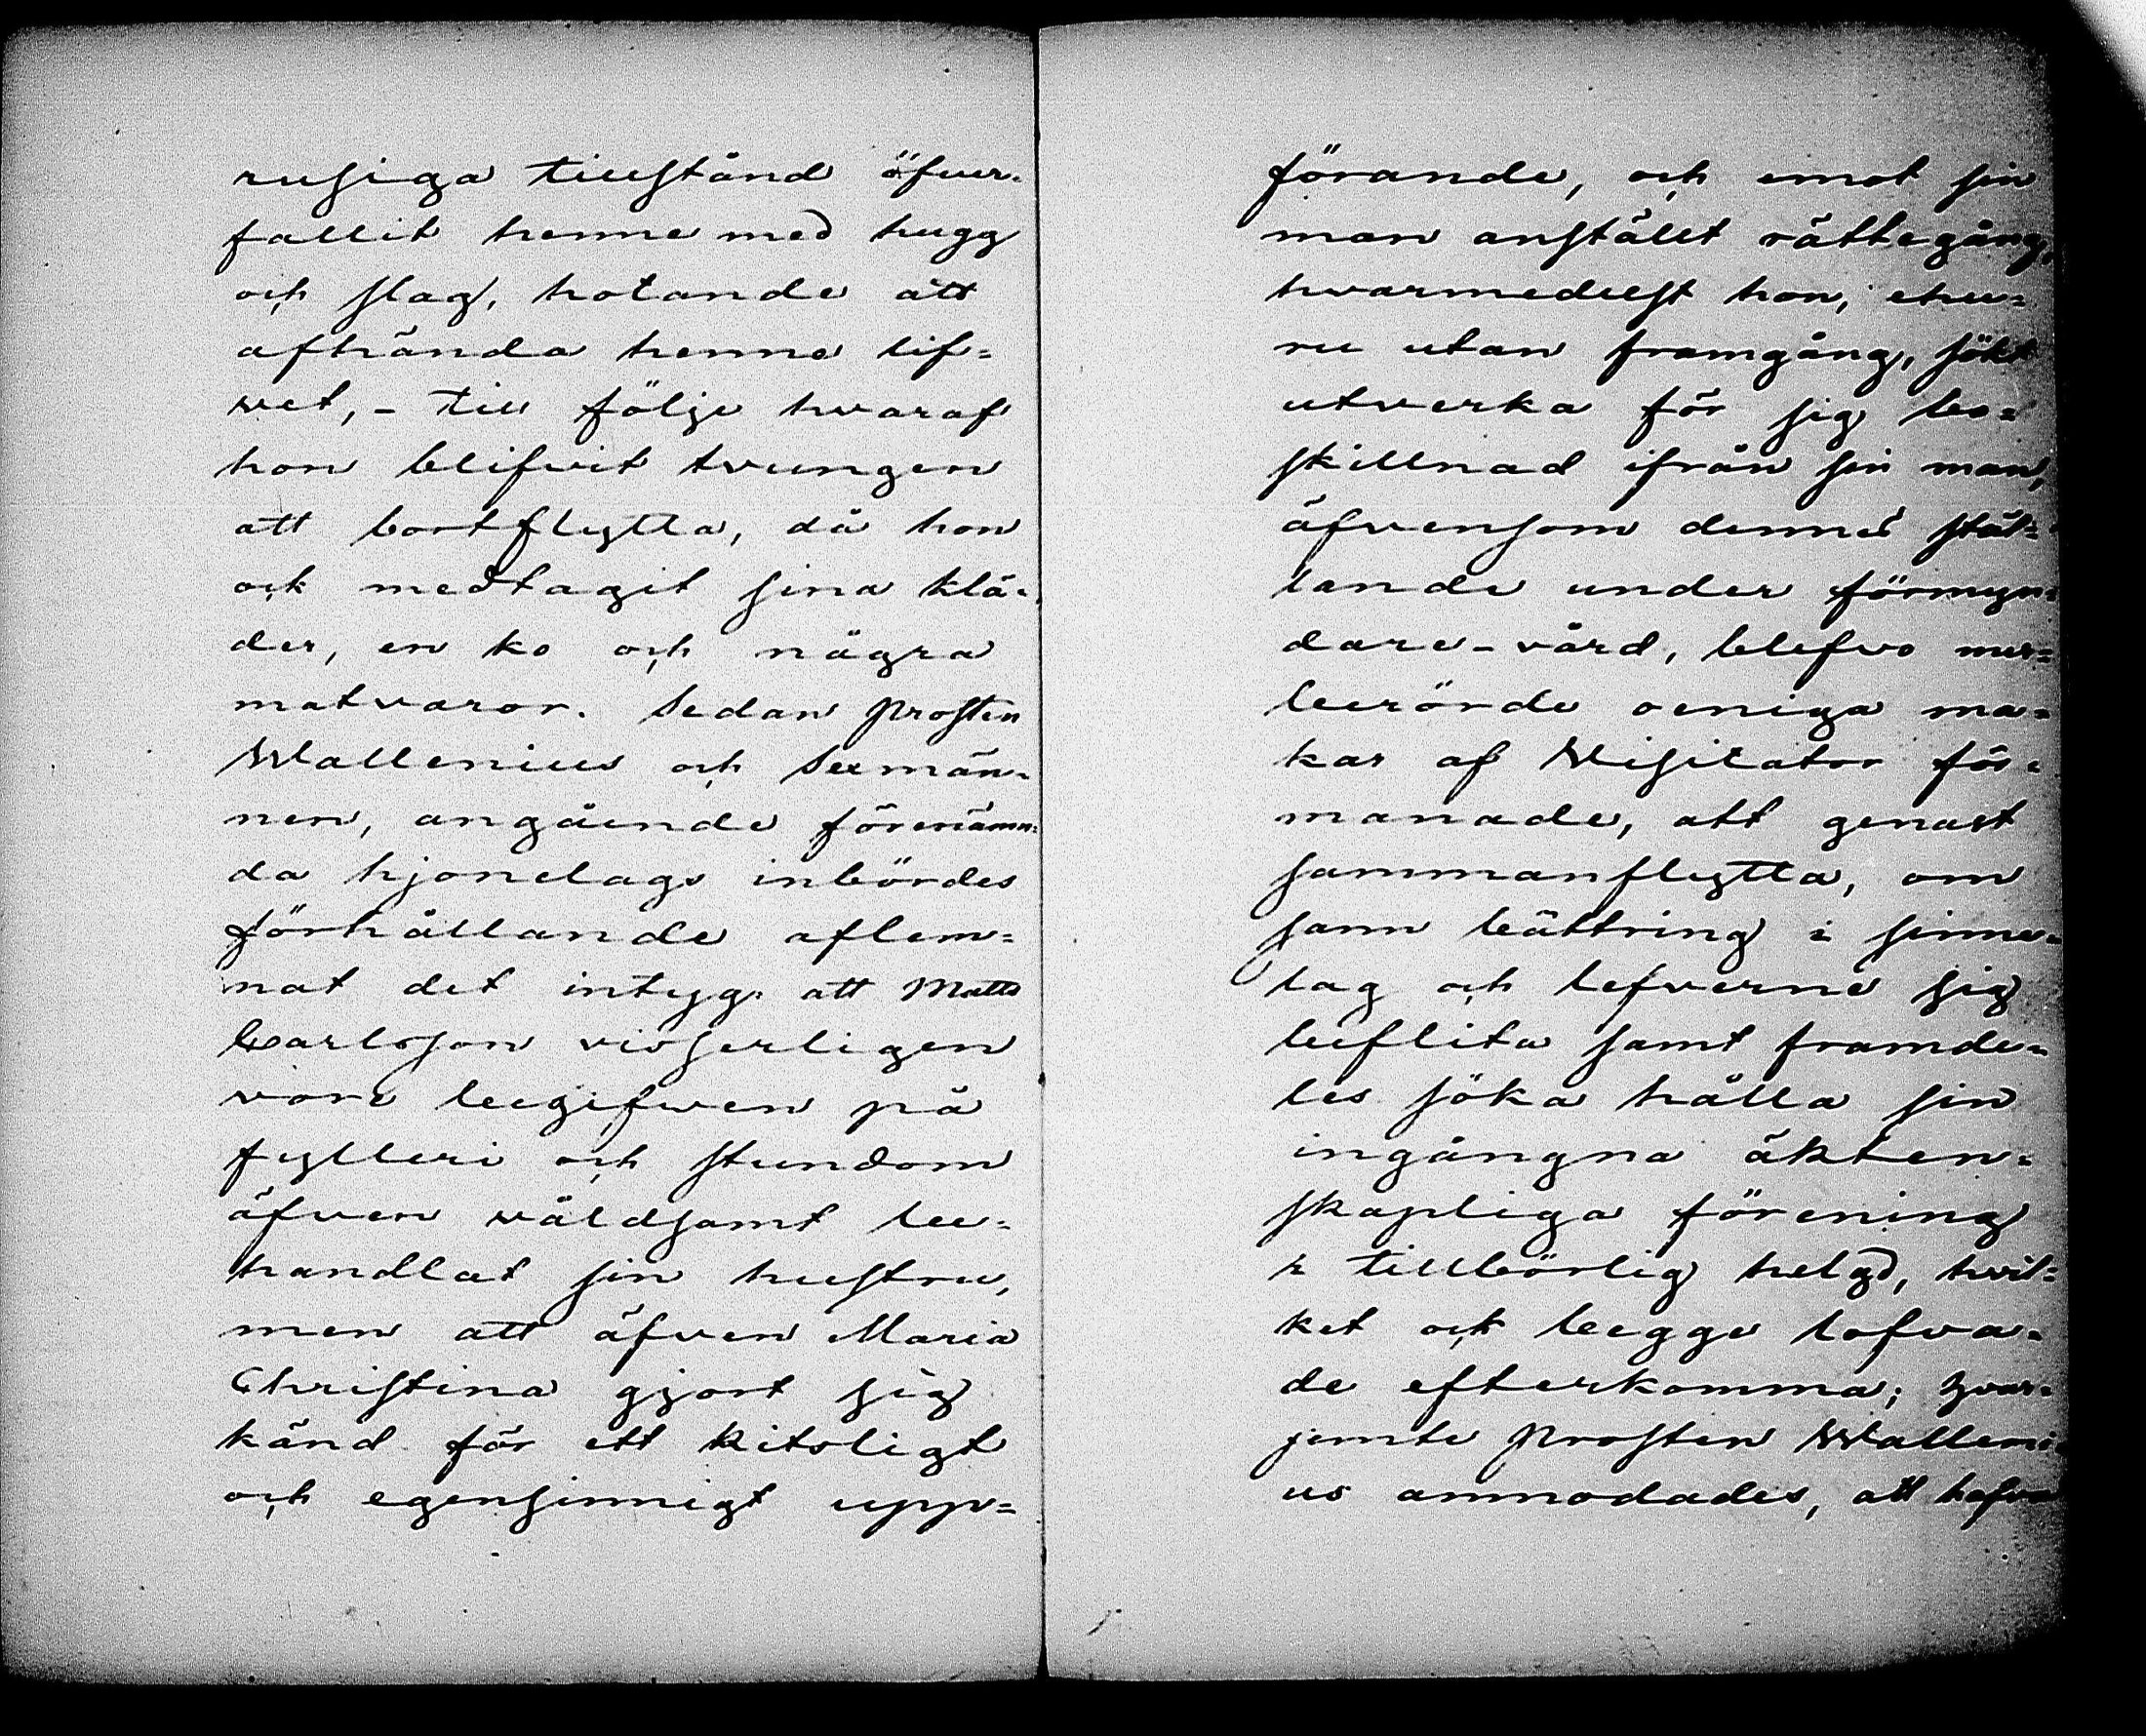 rusiga tillstånd öfver-
fallit henne med hugg
och slag, hotande att
afhända henne lif=
vet, - till följe hvaraf
hon blifvit tvungen
att bortflytta, då hon
ock medtagit sina klä-
der, en ko och några
matvaror. Sedan Prosten
Wallenius och Sexmän-
nen, angående förenämn-
da hjonelags inbördes
förhållande aflem=
nat det intyg, att Matts
Carlsson visserligen
vore begifven på
fylleri och stundom
äfven våldsamt be=
handlat sin hustru,
men att äfven Maria
Christina gjort sig
känd för ett kitsligt
och egensinnigt upp=
förande, och emot sin
man anstält rättegång,
hvarmedelst hon, ehu=
ru utan framgång, sökt
utverka för sig bo=
skillnad ifrån sin man,
äfvensom dennes stäl=
lande under förmyn=
dare-vård, blefvo mer=
berörde oeniga ma=
kar af Visitator för=
manade, att genast
sammanflytta, om
sann bättring i sinne-
lag och lefverne sig
beflita samt framde=
les söka hålla sin
ingångna äkten=
skapliga förening
i tillbörlig helgd, hvil=
ket ock begge lofva=
de efterkomma; hvar=
jemte Prosten Walleni-
us anmodades, att hafva